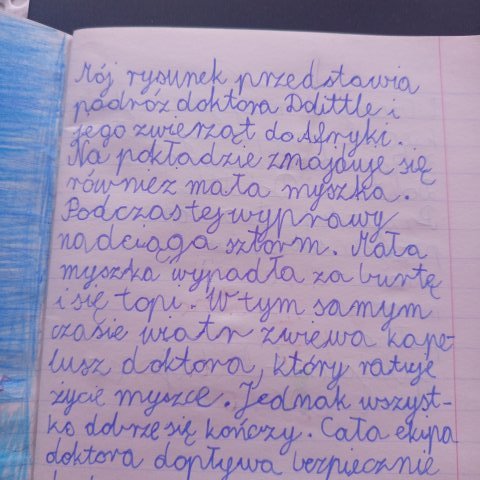 Mój rysunek przedstawia
podróż doktora Dolittle i
jego zwierząt do Afryki.
Na pokładzie znajduje się
również mała myszka.
Podczas tej wyprawy
nadciąga sztorm. Mała
myszka wypadła za burtę
i się topi. W tym samym
czasie wiatr zwiewa kape-
lusz doktora, który ratuje
życie myszce. Jednak wszyst-
ko dobrze się kończy. Cała ekipa
doktora dopływa bezpiecznie